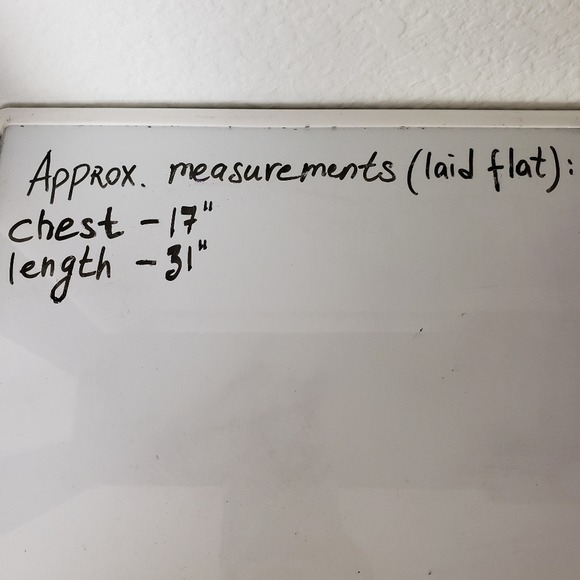 Approx. measurements (laid flat):
chest - 17"
length - 31"